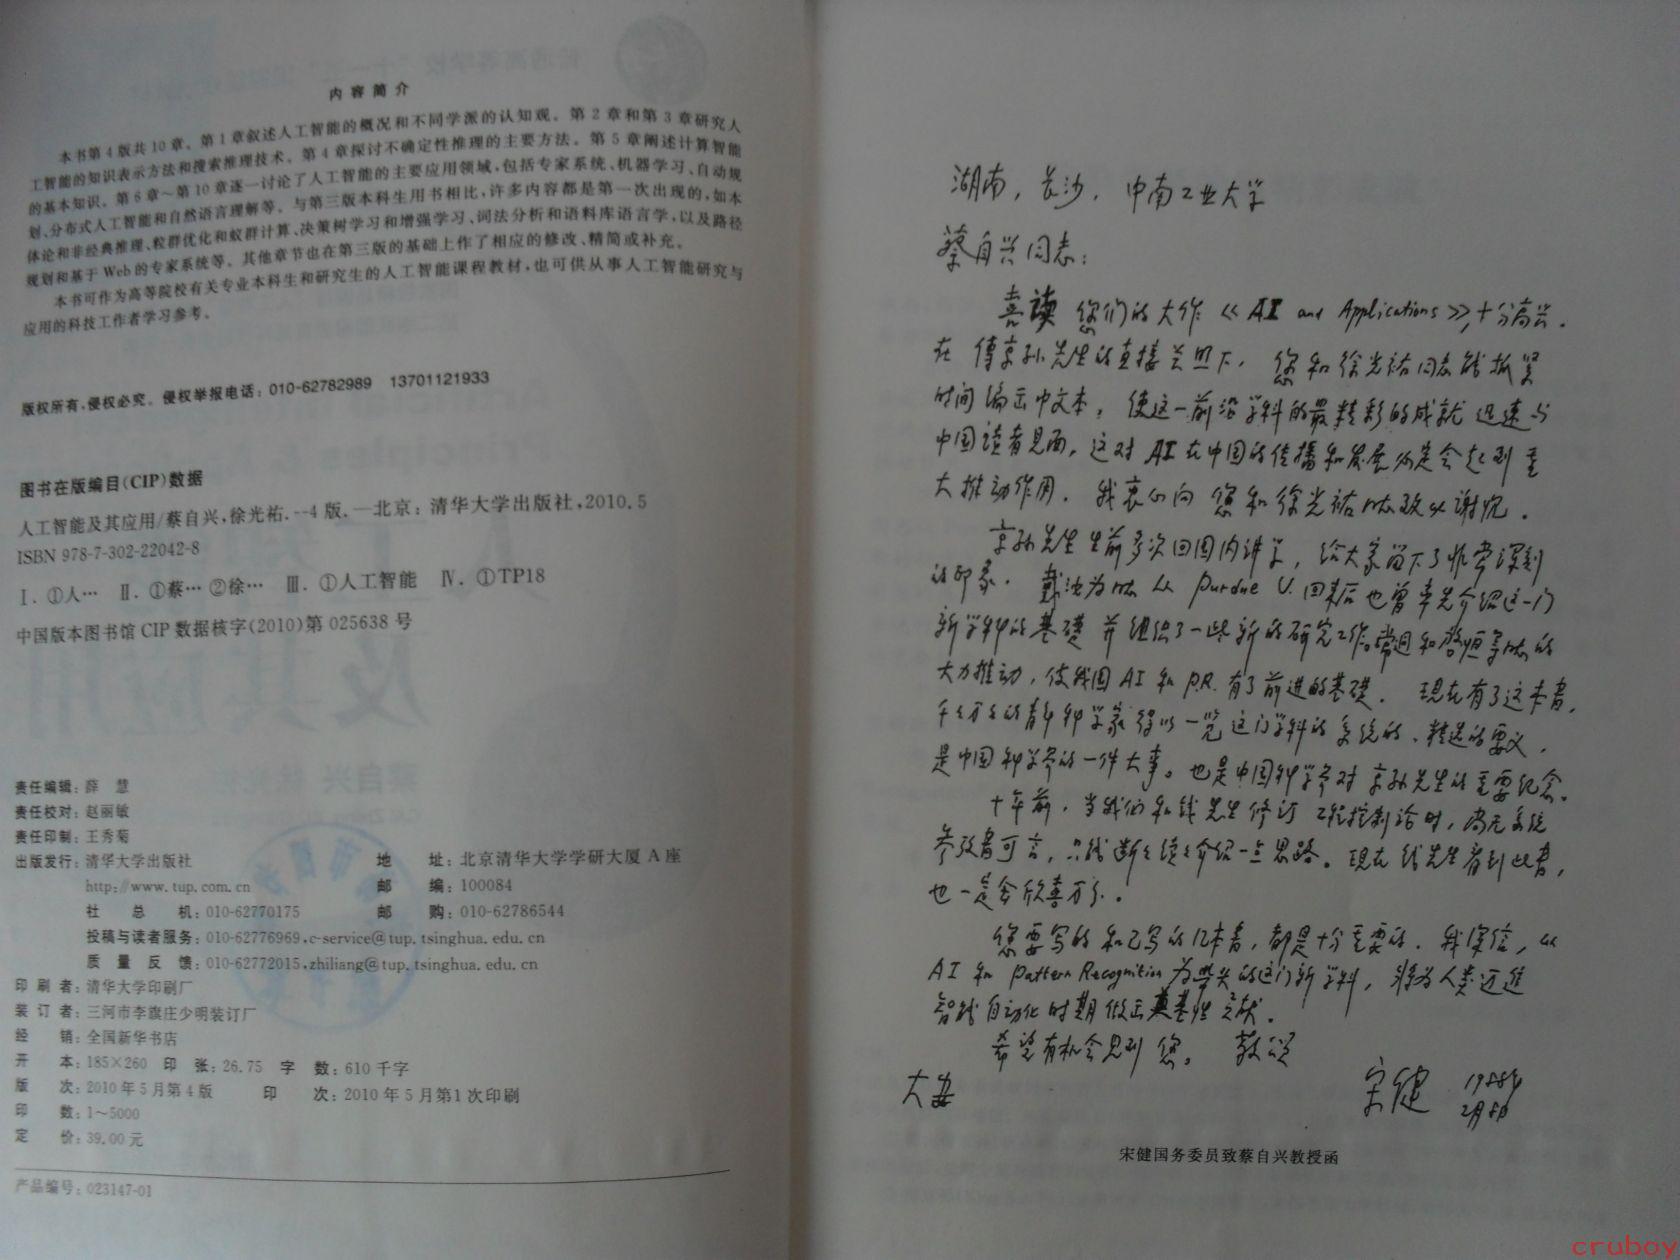 内容简介
本书第4版共10章。第1章叙述人工智能的概况和不同学派的认知观。第2章和第3章研究人
工智能的知识表示方法和搜索推理技术。第4章探讨不确定性推理的主要方法。第5章阐述计算智能
的基本知识。第6章～第10章逐一讨论了人工智能的主要应用领域,包括专家系统、机器学习、自动规
划、分布式人工智能和自然语言理解等。与第三版本科生用书相比,许多内容都是第一次出现的,如本
体论和非经典推理、粒群优化和蚁群计算、决策树学习和增强学习、词法分析和语料库语言学,以及路径
规划和基于Web的专家系统等。其他章节也在第三版的基础上作了相应的修改、精简或补充。
本书可作为高等院校有关专业本科生和研究生的人工智能课程教材,也可供从事人工智能研究与
应用的科技工作者学习参考。
版权所有,侵权必究。侵权举报电话:010-62782989 13701121933
图书在版编目(CIP)数据
人工智能及其应用/蔡自兴,徐光祐.--4版.—北京:清华大学出版社,2010.5
ISBN 978-7-302-22042-8
Ⅰ.①人… Ⅱ.①蔡… ②徐… Ⅲ.①人工智能 Ⅳ.①TP18
中国版本图书馆CIP数据核字(2010)第025638号
责任编辑:薛 慧
责任校对:赵丽敏
责任印制:王秀菊
出版发行:清华大学出版社 地 址:北京清华大学学研大厦A座
http://www.tup.com.cn 邮 编:100084
社 总 机:010-62770175 邮 购:010-62786544
投稿与读者服务:010-62776969,c-service@tup.tsinghua.edu.cn
质 量 反 馈:010-62772015,zhiliang@tup.tsinghua.edu.cn
印 刷 者:清华大学印刷厂
装 订 者:三河市李旗庄少明装订厂
经 销:全国新华书店
开 本:185×260 印 张:26.75 字 数:610千字
版 次:2010年5月第4版 印 次:2010年5月第1次印刷
印 数:1～5000
定 价:39.00元
产品编号:023147-01
湖南,长沙,中南工业大学
蔡自兴同志:
喜读您们的大作《AI and Applications》,十分高兴.
在傅京孙先生的直接关照下,您和徐光祐同志能抓紧
时间编出中文本,使这一前沿学科的最精彩的成就迅速与
中国读者见面,这对AI在中国的传播和发展必定会起到重
大推动作用.我衷心向您和徐光祐同志致以谢忱.
京孙先生生前多次回国内讲学,给大家留下了非常深刻
的印象.戴汝为同志从Purdue U.回来后也曾率先介绍这一门
新学科的基礎并组织了一些新的研究工作。常迵和启恒等同志的
大力推动,使我国AI和P.R.有了前进的基礎.现在有了这本書,
千千万万的青年科学家得以一览这门学科的系统的、精选的要义,
是中国科学界的一件大事。也是中国科学界对京孙先生的重要纪念。
十年前,当我们和钱先生修订工程控制论时,尚无系统
参考書可言,只能断断续续介绍一点思路。现在钱先生看到此書,
也一定会欣喜万分.
您要写的和已写的几本書,都是十分重要的.我深信,以
AI和Pattern Recognition为带头的这门新学科,将为人类迈進
智能自动化时期做出奠基性贡献.
希望有机会见到您。敬颂
大安
宋健 1988年
2月8日
宋健国务委员致蔡自兴教授函
cruboy